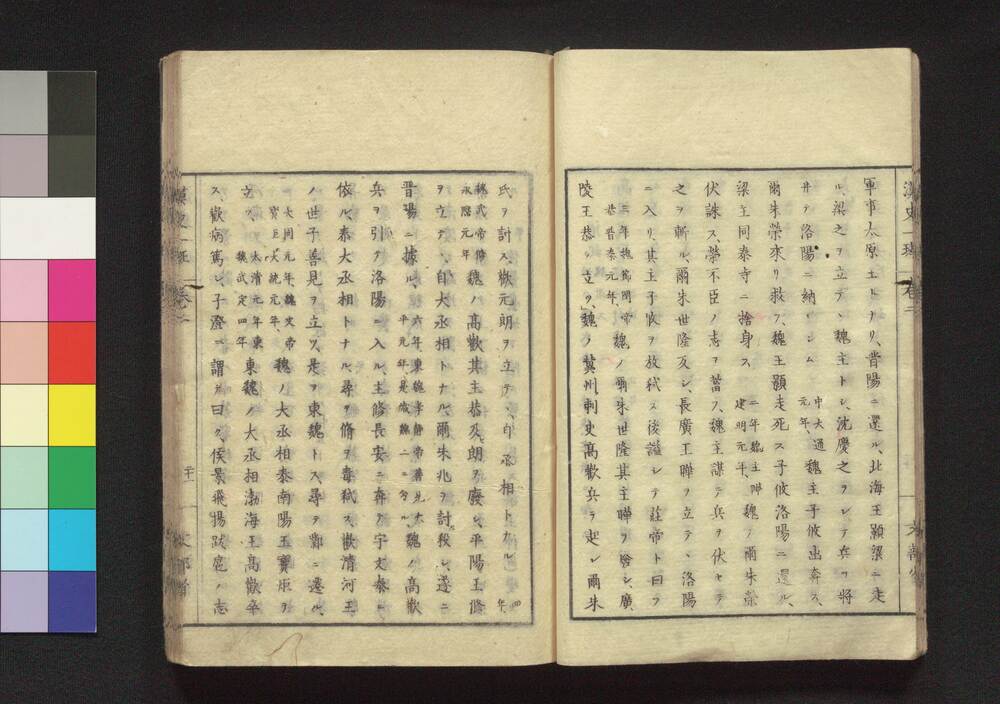 軍事太原王トナリ、晋陽ニ還ル、北海王顥梁ニ走
ル、梁之ヲ立テヽ魏主トシ、沈慶之ヲシテ兵ヲ将
井テ洛陽ニ納レシム 中大通元年、魏主子攸出奔ス、
爾朱榮來リ救フ、魏王顥走死ス子攸洛陽ニ還ル、
梁主同泰寺ニ捨身ス 二年魏主曄建明元年、魏ノ爾朱榮
伏誅ス、榮不臣ノ志ヲ蓄フ、魏主謀テ兵ヲ伏セテ
之ヲ斬ル、爾朱世隆反シ、長廣王曄ヲ立テヽ洛陽
ニ入リ、其主子攸ヲ放弑ス後謚シテ莊帝ト曰フ
三年魏節閔帝恭普泰元年、魏ノ爾朱世隆其主曄ヲ廢シ、廣
陵王恭ヲ立ツ、魏ノ冀州刺史高歡兵ヲ起シ爾朱
氏ヲ討ス、歡元朗ヲ立テヽ自丞相トナル、四年、
魏武帝脩永熙元年 魏ノ高歡其主恭及朗ヲ廢シ、平陽王脩
ヲ立テ、自大丞相トナル、爾朱兆ヲ討殺シ、遂ニ
晋陽ニ據ル、六年東魏孝靜帝善見天平元年是歳魏二ニ分ル、魏ノ高歡
兵ヲ引テ洛陽ニ入ル、主脩長安ニ奔テ宇文泰ニ
依ル、泰大丞相トナル尋テ脩ヲ毒弑ス、歡清河王
ノ世子善見ヲ立ツ、是ヲ東魏トス、尋テ鄴ニ遷ル、
大同元年、魏文帝寳炬大統元年、魏ノ大丞相泰南陽王寶炬ヲ
立ツ、太清元年東魏武定四年 東魏ノ大丞相渤海王高歡卒
ス、歡病篤シ、子澄ニ謂テ曰ク、侯景飛揚跋扈ノ志
漢史一班
卷二